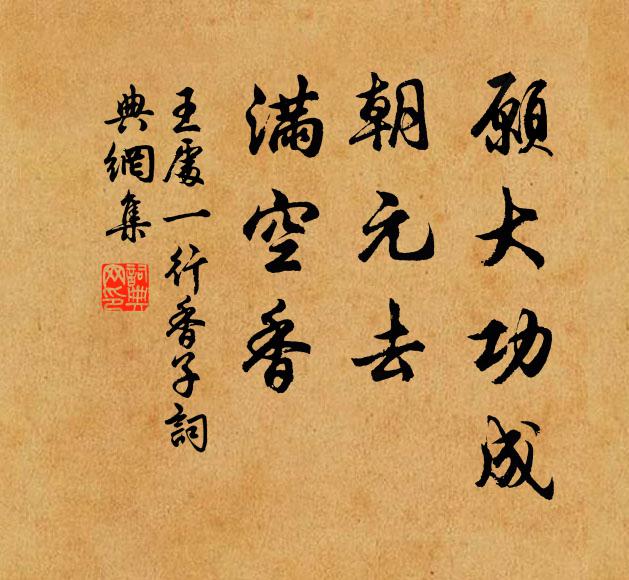 願大功成
朝元去
滿空香
王處一行香子詞
典網集
詞典
网印